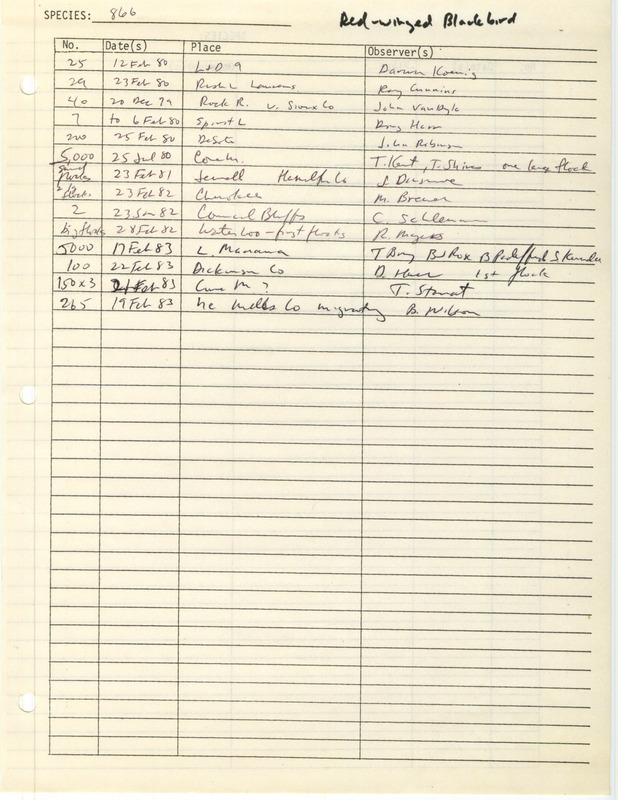 SPECIES: 866 Red-winged Blackbird
No. Date(s) Place Observer(s)
25 12 Feb 80 L+D 9 Darwin Koenig
29 23 Feb 80 Rush L Ray Cummins
40 20 Dec 79 Rock R. Sioux Co John Van Dyk
7 to 6 Feb 80 Spirit L Doug Harr
200 25 Feb 80 DeSoto John Robinson
5,000 25 Jul 80 T. Kent, T. Shires one large flock
23 Feb 81 Jewell Hamilton Co
flock 23 Feb 82 Cherokee M. Brewer
2 23 Jan 82 Council Bluffs
big flocks 28 Feb 82 Waterloo - first flocks R. Myers
5000 17 Feb 83 L. Manawa T Bray B+J Rose B Padelford
100 22 Feb 83 Dickinson Co D. Harr 1st flock
150 x 3 21 Feb 83 ? T. Stewart
265 19 Feb 83 ne Mills Co migrating B. Wilson